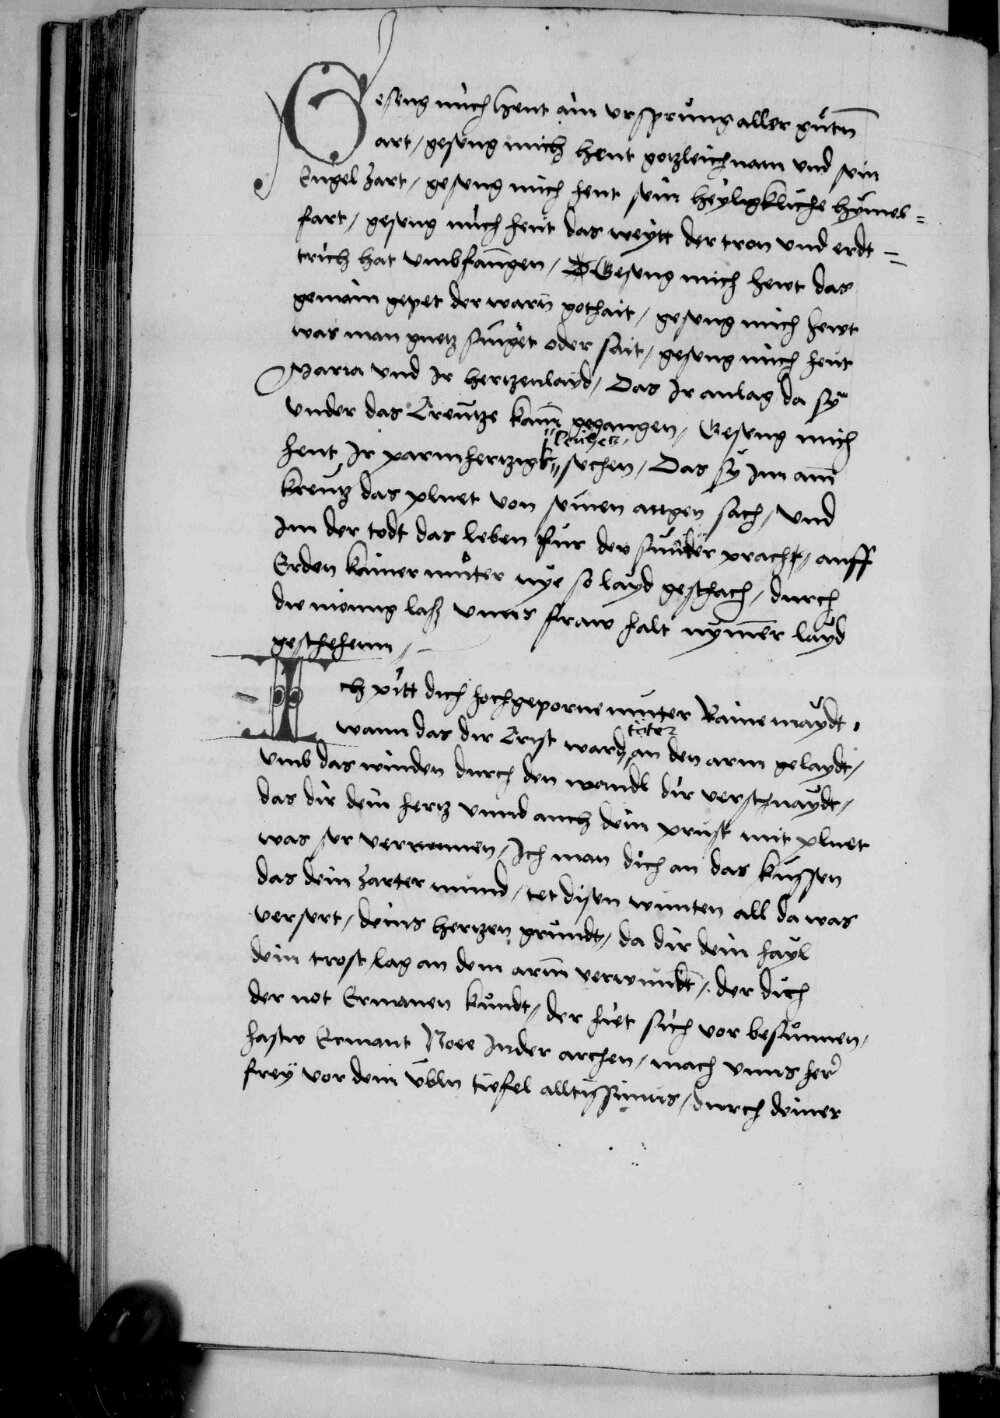 Geseng mich hewt ain vrsprung aller gutn
art / geseng mich hewt gotzleichnam vnd sein
Engel zart / geseng mich hewt sein heyligkliche hymel=
fart / geseng mich hewt das weytt der tron vnd erdt=
trich hat vmbfangen / Geseng mich hewt das
gemain gepet der warn gothait / geseng mich hewt
was man guetz singet oder sait / geseng mich hewt
Maria vnd Ir hertzenlaid / Das Ir anlag da sy
vnder das Creutze kam gegangen / Geseng mich
hewt Ir parmhertzigk sechen / Das sy Inn am
kreutz das pluet von seinen augen sach / vnd
Im der todt das leben fur der sunder prach / auff
Erden kainer muter nye so layd geschach / durch
die mainung lass vnns fraw halt nymer layd
geschehenn /
Ich pitt dich hochgeporne muter Raine maydt
wann das dir Crist ward toter an den arm gelaydt /
vmb das winden durch den wandl dir verschnaydt /
das dir dein hertz vnnd auch dein prust mit pluet
was ser verrunnen / Ich man dich an das kussen
das dein zarter mund / tet disen wunten all da was
versert / deins hertzen grundt / da dir dein hayl
dein trost lag an dem arm verwundt / der dich
der not Ermanen kundt / der hiet sich vor besunnen /
hastw Ermant Noee In der archen / mach vnns her
frey vor dem vbln tiefel alltissimus / durch deiner